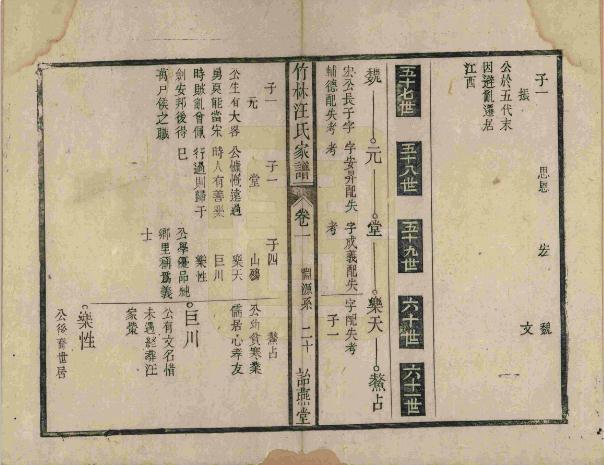 子一
振
公於五代末
因避亂遷居
江西
思恩
宏
文
魏
五十七世
五十八世
五十九世
六十世
六十一世
魏
元
堂
樂天
鰲占
宏公長子字
輔德配失考
字安昇配失
考
字成義配失
考
字配失考
子一
竹林汪氏家譜
卷一
淵源系
二十
詒燕堂
子一
元
公生有大畧
勇莫能當宋
時賊亂會佩
劍安邦後得
萬戶侯之職
子一
堂
公慷慨遠過
時人有善
行過則歸于
巳
子四
山
樂天
巨川
樂性
公學優品
鄉里稱爲義
士
鰲占
公幼貧寒業
儒居心孝友
巨川
公有文名惜
未過經葬汪
家
樂性
公後裔世居